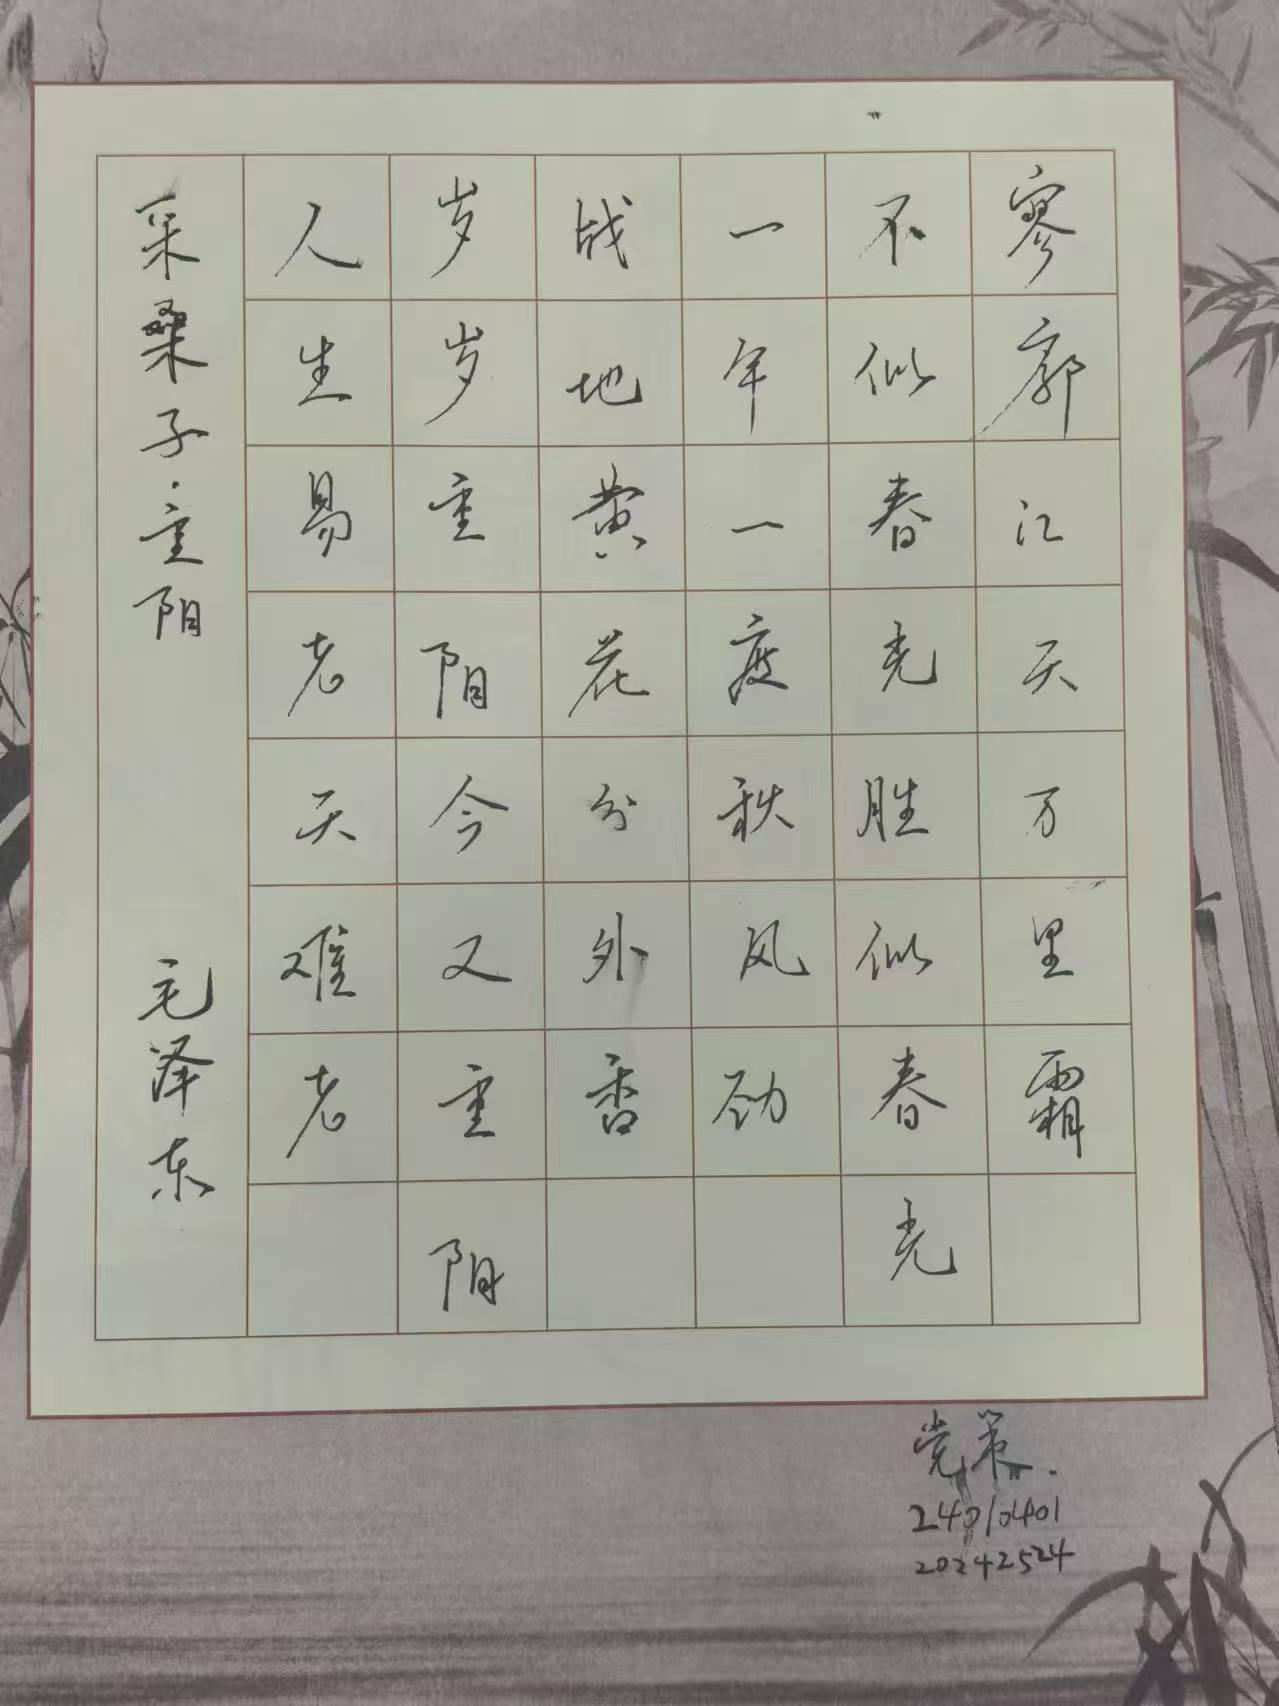 采桑子·重阳 毛泽东
人生易老天难老
岁岁重阳今又重阳
战地黄花分外香
一年一度秋风劲
不似春光胜似春光
寥廓江天万里霜
党策.
24010401
20242524